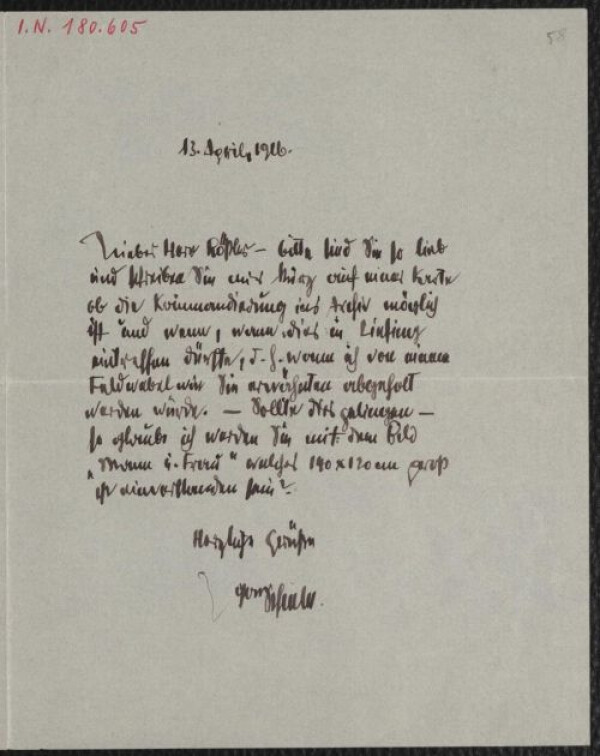 I.N. 180.605
58
13. April, 1916.
Lieber Herr Rößler – bitte sind Sie so lieb
und schreiben Sie mir kurz auf einer Karte
ob die Kommandierung ins Archiv möglich
ist und wann, wann dies in Liesing
eintreffen dürfte, d. h. wann ich von einem
Feldwebel wie Sie erwähnten abgeholt
werden würde. – Sollte dies gelingen –
so glaube ich werden Sie mit dem Bild
„Mann u. Frau“ welches 140 x 120 cm groß
ist einverstanden sein?
Herzliche Grüße
Egon Schiele.